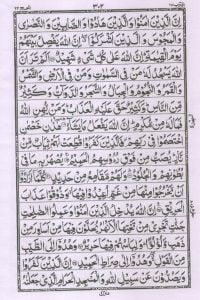 ٣٠٢
اِنَّ الَّذِيْنَ اٰمَنُوْا وَالَّذِيْنَ هَادُوْا وَالصَّابِـِٕيْنَ وَالنَّصٰرٰى
وَالْمَجُوْسَ وَالَّذِيْنَ اَشْرَكُوْا اِنَّ اللّٰهَ يَفْصِلُ بَيْنَهُمْ
يَوْمَ الْقِيٰمَةِ اِنَّ اللّٰهَ عَلٰى كُلِّ شَيْءٍ شَهِيْدٌ اَلَمْ تَرَ اَنَّ
اللّٰهَ يَسْجُدُ لَهٗ مَنْ فِي السَّمٰوٰتِ وَمَنْ فِي الْاَرْضِ وَالشَّمْسُ
وَالْقَمَرُ وَالنُّجُوْمُ وَالْجِبَالُ وَالشَّجَرُ وَالدَّوَآبُّ وَكَثِيْرٌ
مِّنَ النَّاسِ وَكَثِيْرٌ حَقَّ عَلَيْهِ الْعَذَابُ وَمَنْ يُّهِنِ اللّٰهُ
فَمَا لَهٗ مِنْ مُّكْرِمٍ اِنَّ اللّٰهَ يَفْعَلُ مَا يَشَآءُ هٰذٰنِ خَصْمٰنِ
اخْتَصَمُوْا فِيْ رَبِّهِمْ فَالَّذِيْنَ كَفَرُوْا قُطِّعَتْ لَهُمْ ثِيَابٌ مِّنْ
نَّارٍ يُصَبُّ مِنْ فَوْقِ رُءُوْسِهِمُ الْحَمِيْمُ يُصْهَرُ بِهٖ مَا فِيْ
بُطُوْنِهِمْ وَالْجُلُوْدُ وَلَهُمْ مَّقَامِعُ مِنْ حَدِيْدٍ كُلَّمَآ اَرَادُوْٓا
اَنْ يَّخْرُجُوْا مِنْهَا مِنْ غَمٍّ اُعِيْدُوْا فِيْهَا وَذُوْقُوْا عَذَابَ
الْحَرِيْقِ اِنَّ اللّٰهَ يُدْخِلُ الَّذِيْنَ اٰمَنُوْا وَعَمِلُوا الصّٰلِحٰتِ
جَنّٰتٍ تَجْرِيْ مِنْ تَحْتِهَا الْاَنْهٰرُ يُحَلَّوْنَ فِيْهَا مِنْ اَسَاوِرَ مِنْ
ذَهَبٍ وَّلُؤْلُؤًا وَلِبَاسُهُمْ فِيْهَا حَرِيْرٌ وَهُدُوْٓا اِلَى الطَّيِّبِ
مِنَ الْقَوْلِ وَهُدُوْٓا اِلٰى صِرَاطِ الْحَمِيْدِ اِنَّ الَّذِيْنَ كَفَرُوْا
وَيَصُدُّوْنَ عَنْ سَبِيْلِ اللّٰهِ وَالْمَسْجِدِ الْحَرَامِ الَّذِيْ جَعَلْنٰهُ